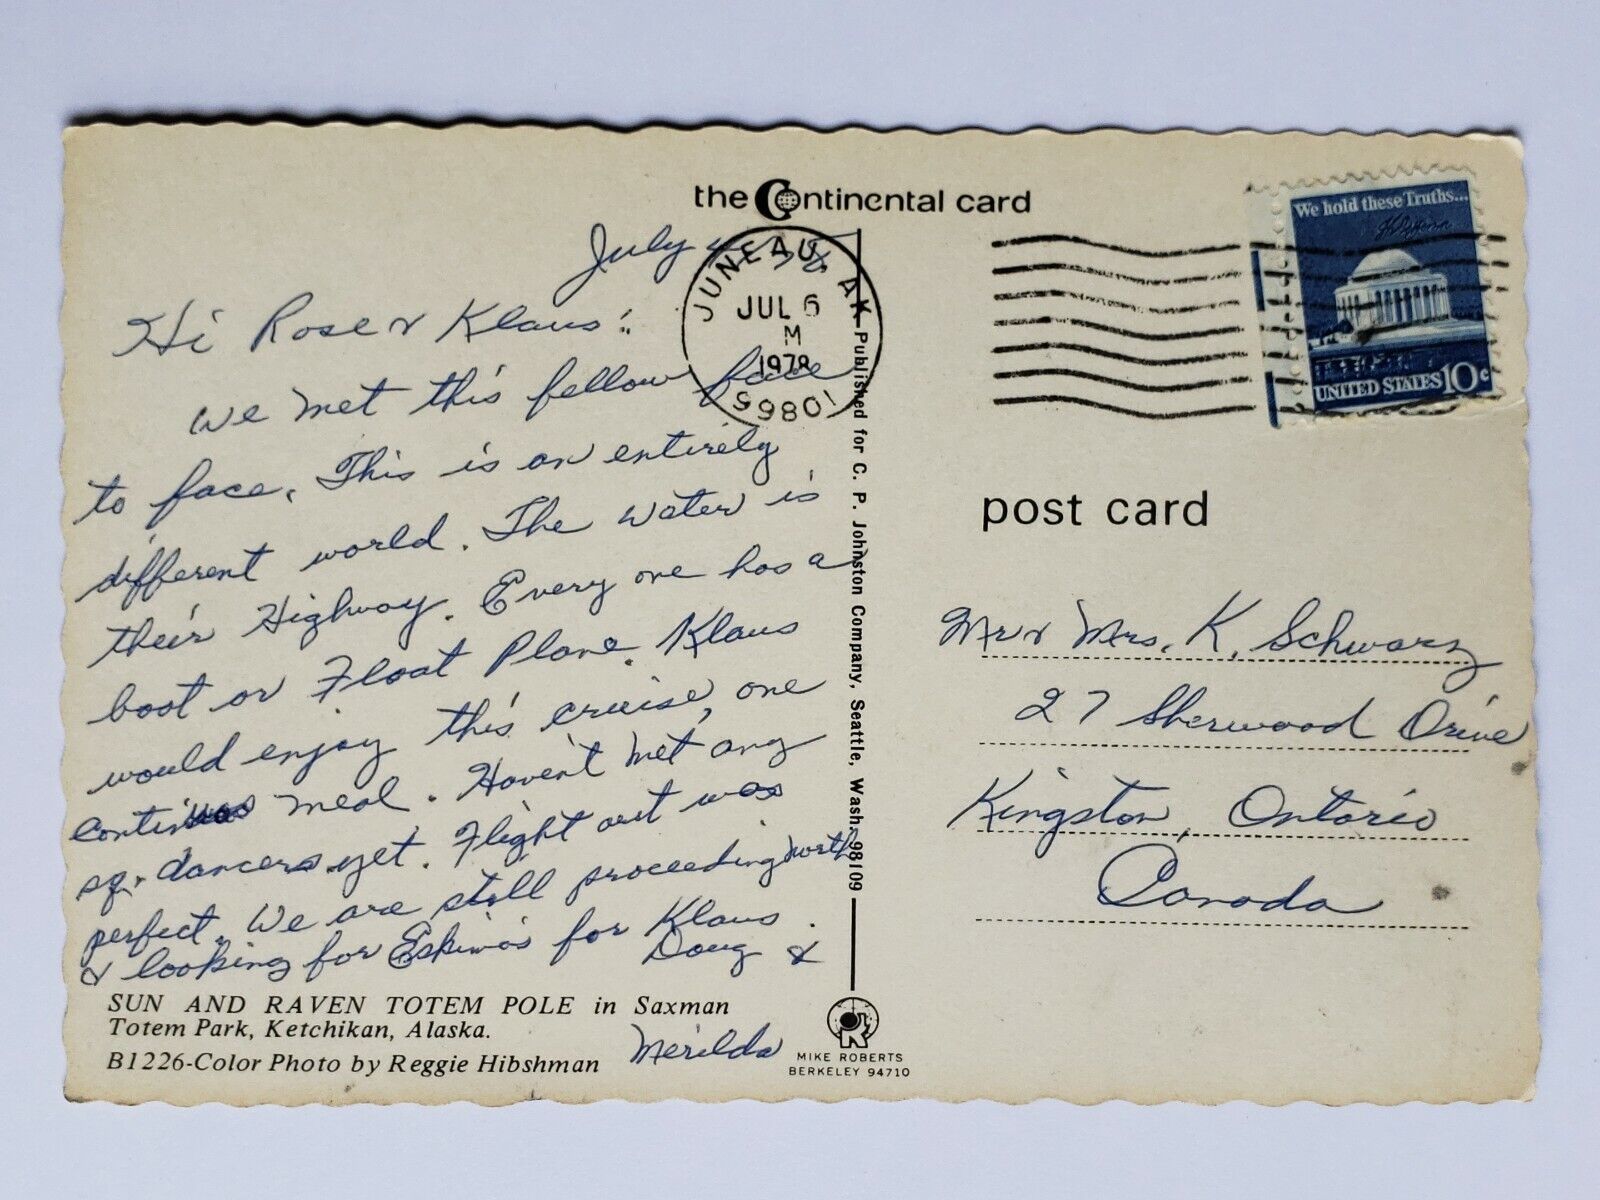 the Continental card
July 4, 78
Hi Rose & Klaus:
We met this fellow face
to face. This is an entirely
different world. The water is
their Highway. Every one has a
boat or Float Plane. Klaus
would enjoy this cruise, one
meal. Haven't met any
sq. dancers yet. Flight out was
perfect. We are still proceeding north
& looking for Eskimos for Klaus.
Doug &
Merilda
SUN AND RAVEN TOTEM POLE in Saxman
Totem Park, Ketchikan, Alaska.
B1226-Color Photo by Reggie Hibshman
JUNEAU, AK
JUL 6
M
1978
99801
Published for C. P. Johnston Company, Seattle, Wash. 98109
MIKE ROBERTS
BERKELEY 94710
We hold these Truths...
UNITED STATES 10c
post card
Mr & Mrs. K. Schwarz
27 Sherwood Drive
Kingston, Ontario
Canada